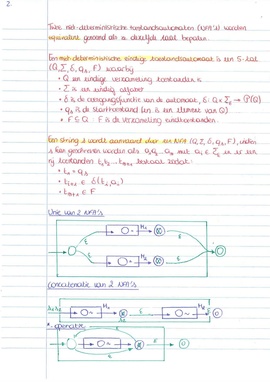 2
Twee niet-deterministische toestandsautomaten (NFA's) worden
equivalent genoemd als ze dezelfde taal bepalen.
Een niet-deterministische eindige toestandsautomaat is een 5-tal
(Q, Σ, δ, qs, F) waarbij
• Q een eindige verzameling toestanden is
• Σ is een eindig alfabet
• δ is de overgangsfunctie van de automaat, δ: Q × Σε → P(Q)
• qs is de starttoestand (en is een element van Q)
• F ⊆ Q : F is de verzameling eindtoestanden.
Een string s wordt aanvaard door een NFA (Q, Σ, δ, qs, F), indien
s kan geschreven worden als met ai ∈ Σε er een
rij toestanden bestaat zodat:
• = qs
• ti+1 ∈ δ(ti, ai)
• ∈ F
Unie van 2 NFA's
M1
ε
ε
ε
ε
M2
Concatenatie van 2 NFA's
M1
ε
M2
ε
*-operatie
ε
ε